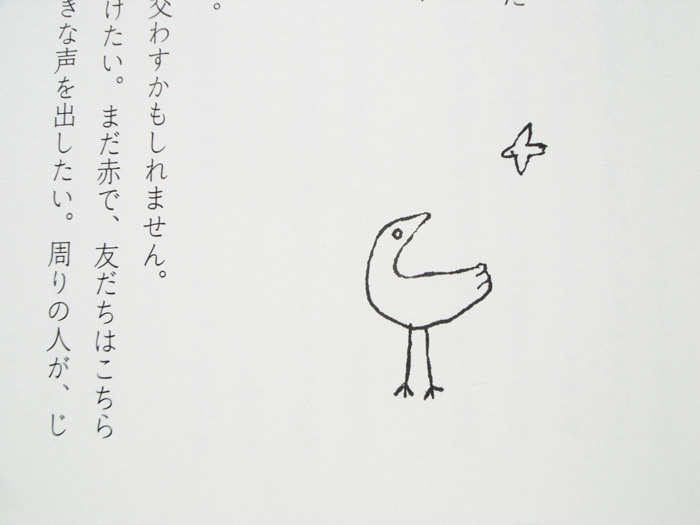 た
。
交わすかもしれません。
けたい。まだ赤で、友だちはこちら
きな声を出したい。周りの人が、じ